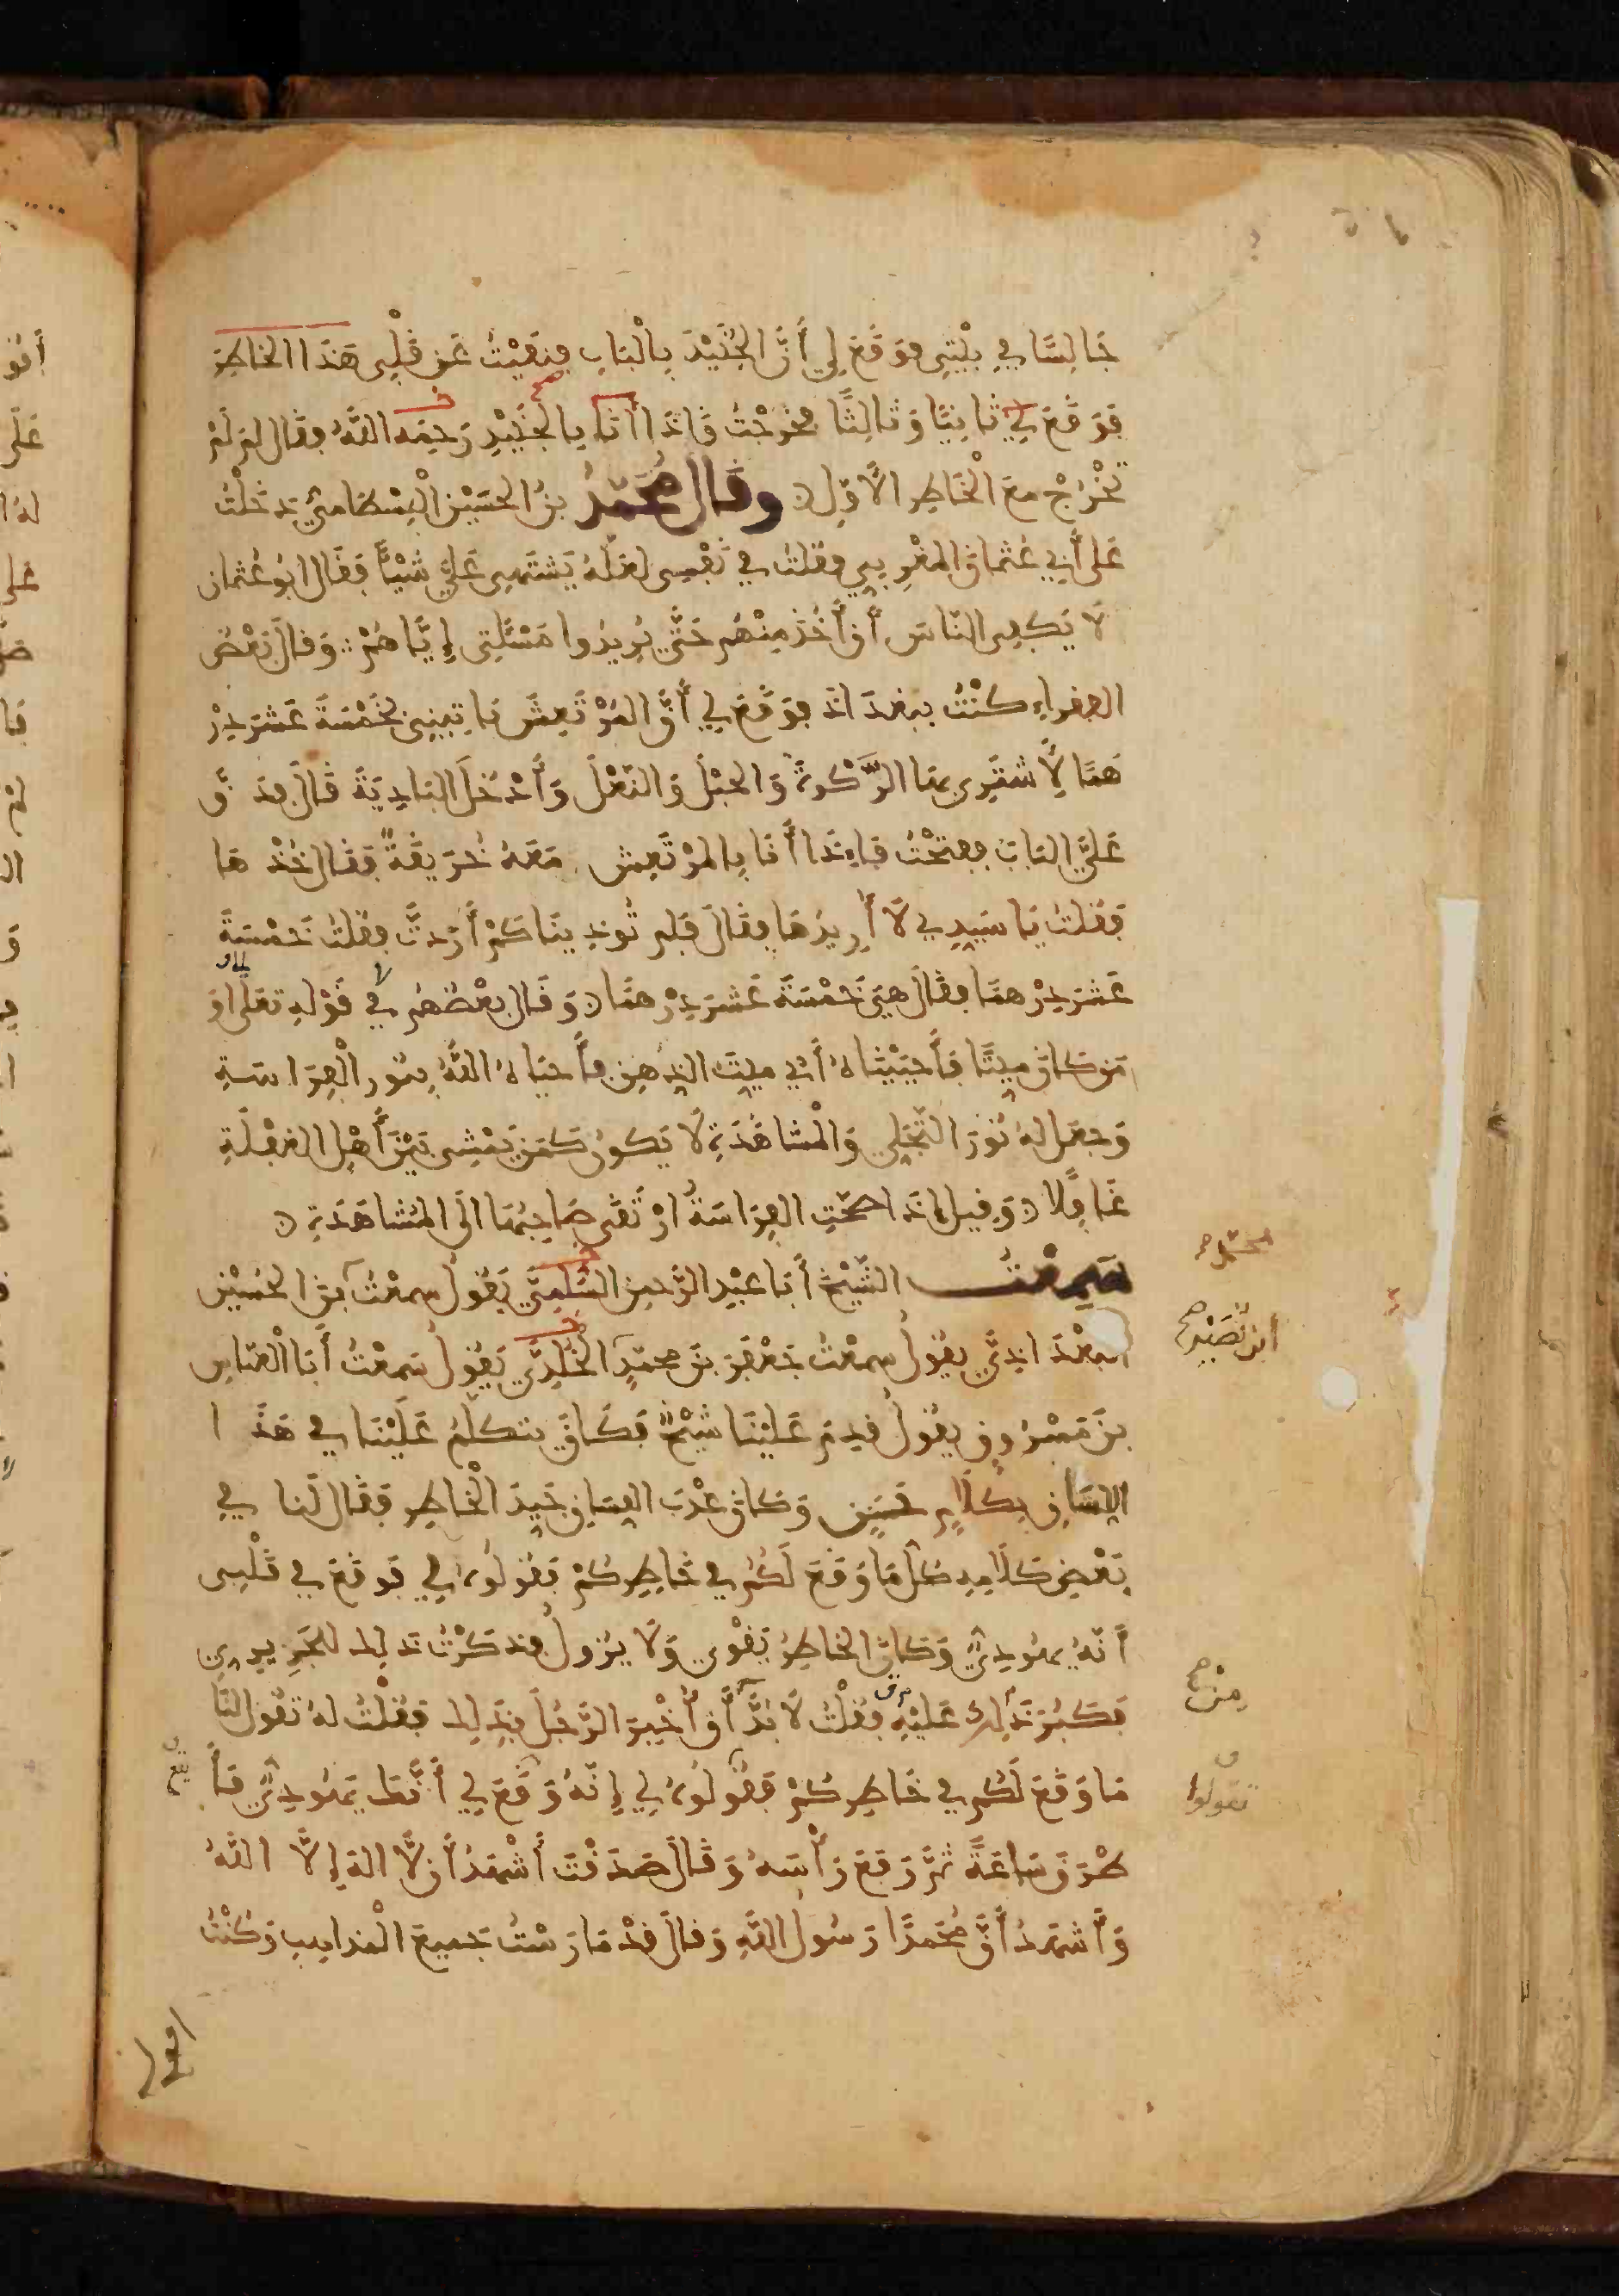 جَالِسًا فِي بَيْتِي فوَقَعَ لِي أَنَّ الجُنَيْدَ بِالْبَابِ فنَفَيْتُ عَن قَلْبِى هَذَا الخَاطِرَ
فَوَقَعَ لِي ثَانِيًا وَثَالِثًا فخَرَجْتُ فَاذَا أنَا بِالجُنَيْدِ رَحِمَه اللَّهُ فقَال لِمَ لَمْ
تَخْرُجْ معَ الْخَاطِرِ الأوَّلِ وقَالَ مُحَمَّدُ بنُ الحسَيْن الْبِسْطَامِيُّ دَخَلْتُ
عَلى أَبِي عُثمَانَ المَغْرِبِي فقلتُ فِي نَفْسِى لعَلَّهُ يَشْتَهِى عَلَيَّ شَيْئًا فَقَال ابُو عُثمان
لَا يَكفِى النَّاسَ أن أَخُذَ مِنْهُم حَتَّى يُرِيدُوا مَسْئَلَتِى إِيَّاهُمْ وَقالَ بَعْضُ
الفقراءِ كنْتُ ببغدَاذ فوَقَعَ لِي أَنَّ المُرْتَعِشَ يَاتِينِى بخَمْسَةَ عَشَرَ دِرْ
هَمًا لِأشْتَرِى بِهَا الرَّكْوةَ وَالحَبْلَ وَالنَّعْلَ وَأَدْخُلَ البَادِيَةَ قَالَ فدَقَّ
عَلَيَّ البَابَ ففتَحْتُ فَإِذَا أَنَا بِالمُرْتَعِش مَعَهُ خُرَيقَةٌ فَقَال خُذْهَا
فَقلتُ يَا سَيِدِي لَا أُرِيدُهَا فقَالَ فَلِمَ تُوذِينَا كَمْ أَرَدتَّ فقلتُ خَمْسَةَ
عَشَرَ دِرْهمًا فقَالَ هِيَ خَمْسَةَ عَشَرَ دِرْهمًا وَقَال بعْضُهُم فِي قَوْلِهِ تعَلَى أوَ
مَن كانَ ميِتًا فَأَحيَيْنَاهُ أَيْ ميِّتَ الذِهنِ فأَحيَاهُ اللَّهُ بِنُورِ الْفِرَاسَةِ
وَجعَل لهُ نُورَ التَّجَلِّي وَالْمشَاهَدَةِ لَا يَكونُ كَمَن يَمْشِى بَيْنَ أَهْلِ الغفْلَةِ
غَافِلًا وَقِيل إِذَا صحَّتِ الفِرَاسَةُ ارْتَقَى صَاحِبُهَا الَى المُشَاهَدَةِ
سَمِعْتُ الشَّيْخَ أَبَا عَبْدِ الرَّحمنِ السُّلَمِيَّ يَقُولُ سمعْتُ بنَ الحُسَيْنِ
البغْدَاذِيَّ يقُولُ سمعْتُ جَعْفَرَ بْنَ محمدٍ الخُلْدِيَّ يَقُولُ سَمعْتُ أَبَا الْعَبَّاسِ
بنَ مَسْرُوقٍ يقُولُ قدِمَ عَلَيْنَا شَيْخٌ فَكَانَ يتكلَّمُ عَلَيْنَا فِي هَذَا
الِسَانِ بكلَامٍ حَسَنٍ وَكانَ عذْبَ اللِسَانِ جَيِدَ الْخَاطِرِ فَقَال لَنا فِي
بَعْضِ كَلَامِهِ كلُّ مَا وَقَعَ لَكُمْ فِي خَاطِرِكُمْ فَقُولُوهُ لِي فَوقَعَ فِي قَلْبِى
أَنَّهُ يهُودِيٌّ وَكَانَ الخاطِرُ يَقْوِى وَلَا يَزُولُ فذكَرْتُ ذلِك للجَرِيرِي
فَكَبُرَ ذَلِكَ عَلَيْهِ فقُلْتُ لَا بُدَّ أَن أُخْبِرَ الرَّجُلَ بِذَلِك فَقُلْتُ لهُ تَقُولُ لنَا
مَا وَقَعَ لَكُم فِي خَاطِرِكُمْ فَقُولُوهُ لِي إِنَّهُ وَقَعَ لِي أَنَّكَ يَهُودِيٌّ فَأَ
طْرَقَ سَاعَةً ثمَّ رَفَعَ رَأْسَهُ وَقَالَ صَدَقْتَ أَشْهَدُ أَن لَّا الهَ إِلَّا اللَّهُ
وَأَشهَدُ أَنَّ مُحَمَدًا رَسُولُ اللَّهِ وَقالَ قدْ مَارَسْتُ جَميعَ الْمذاهِبِ وَكُنْتُ
محمد صح
مِنْ صح
تقولوا
اقول